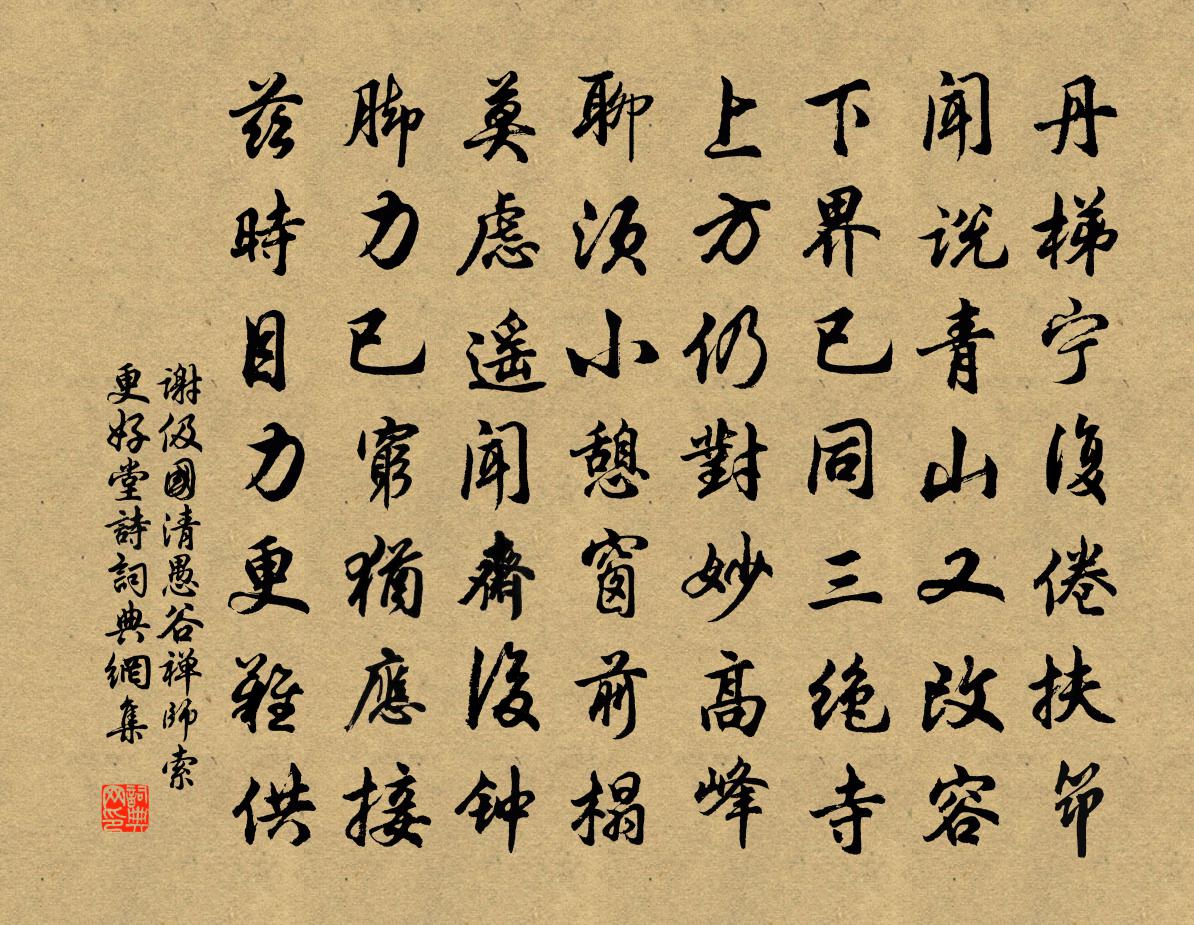 丹梯宁復倦扶笻
闻说青山又改容
下界已同三绝寺
上方仍對妙高峰
聊须小憩窗前榻
莫虑遥闻齋後钟
脚力已窮猶應接
兹時目力更難供
谢伋國清愚谷禅師索
更好堂詩詞典網集
詞典网印